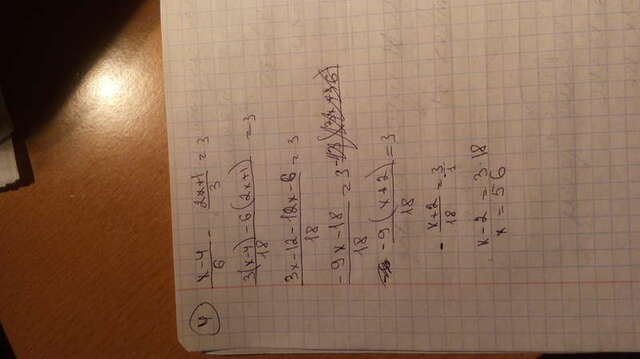 4 (x-4)/6 - (2x+1)/3 = 3
(3(x-4) - 6(2x+1))/18 = 3
(3x-12-12x-6)/18 = 3
(-9x-18)/18 = 3
(-9(x+2))/18 = 3
- (x+2)/18 = 3/1
x-2 = 3·18
x = 56